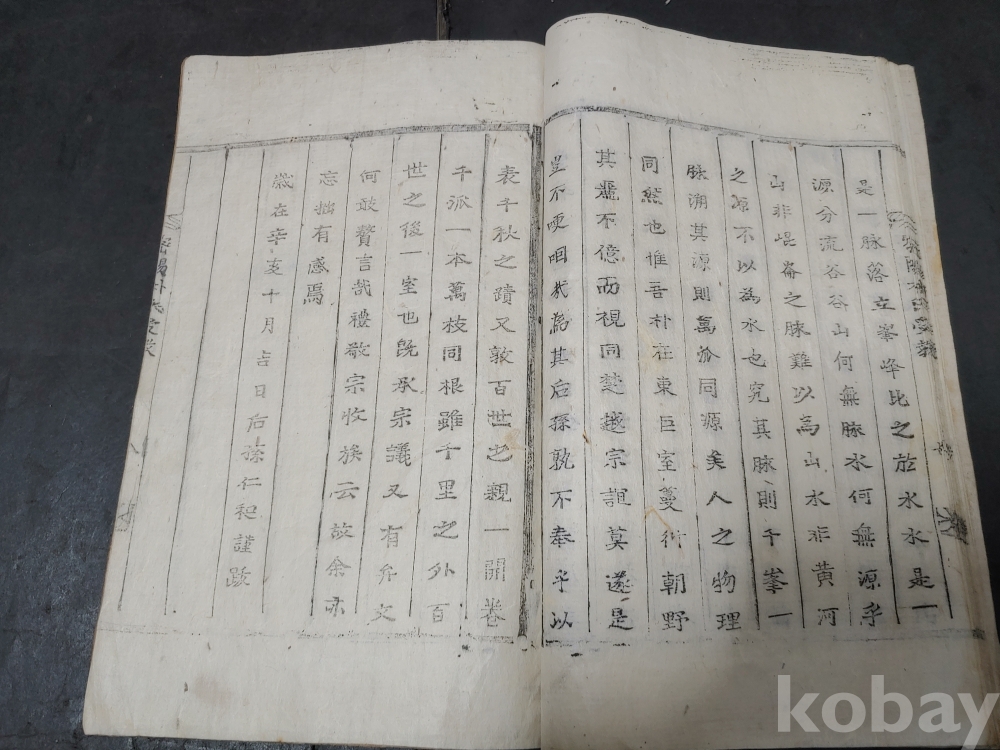 是一脉落立峯峰比之於水水是一
源分流谷谷山何無脉水何無源乎
山非崐崙之脉難以為山水非黄河
之源不以為水也究其脉則千峯一
脉溯其源則萬派同源矣人之物理
同然也惟吾朴在東巨室蔓衍朝野
其麗不億而視同楚越宗誼莫邃是
豈不哽咽哉為其后孫孰不奉乎以
表千秋之蹟又敦百世之親一開卷
千派一本萬枝同根雖千里之外百
世之後一室也旣承宗議又有弁文
何敢贅言哉禮敬宗收族云故余亦
忘拙有感焉
歲在辛亥十月吉日后孫仁和謹跋
密陽朴氏受教
八
kobay